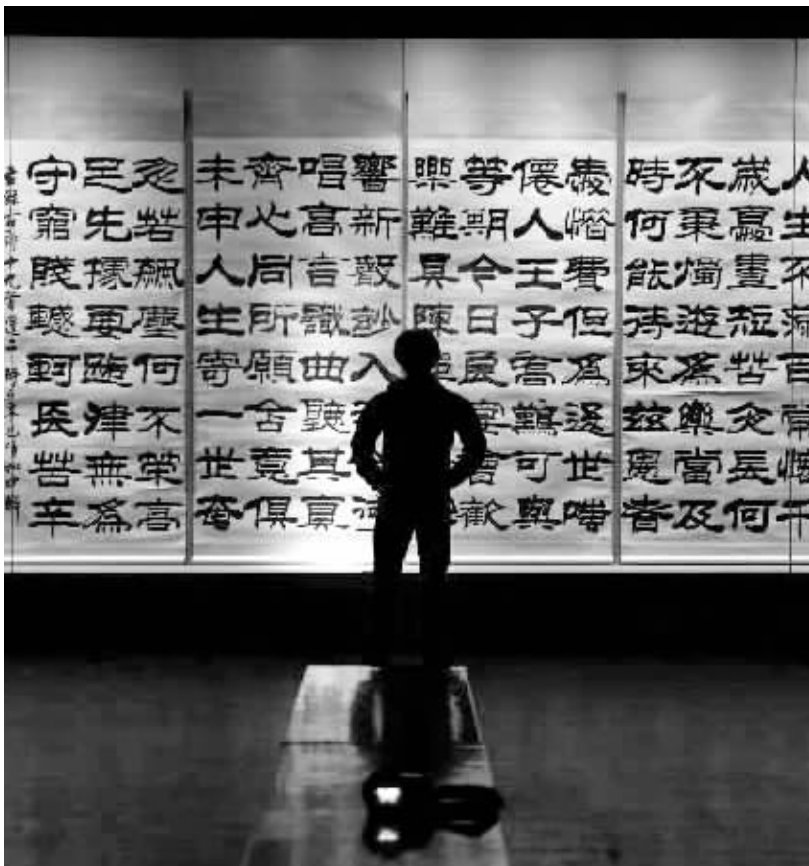 人生不滿百常懷千
歲憂晝短苦夜長何
不秉燭遊爲樂當及
時何能待來茲愚者
愛惜費但爲後世嗤
僊人王子喬難可與
等期今日良宴會歡
樂難具陳
響新聲妙入
唱高言識曲聽其眞
齊心同所願含意俱
未申人生寄一世奄
忽若飆塵何不策高
足先據要路津無爲
守窮賤轗軻長苦辛
古詩十九首選二